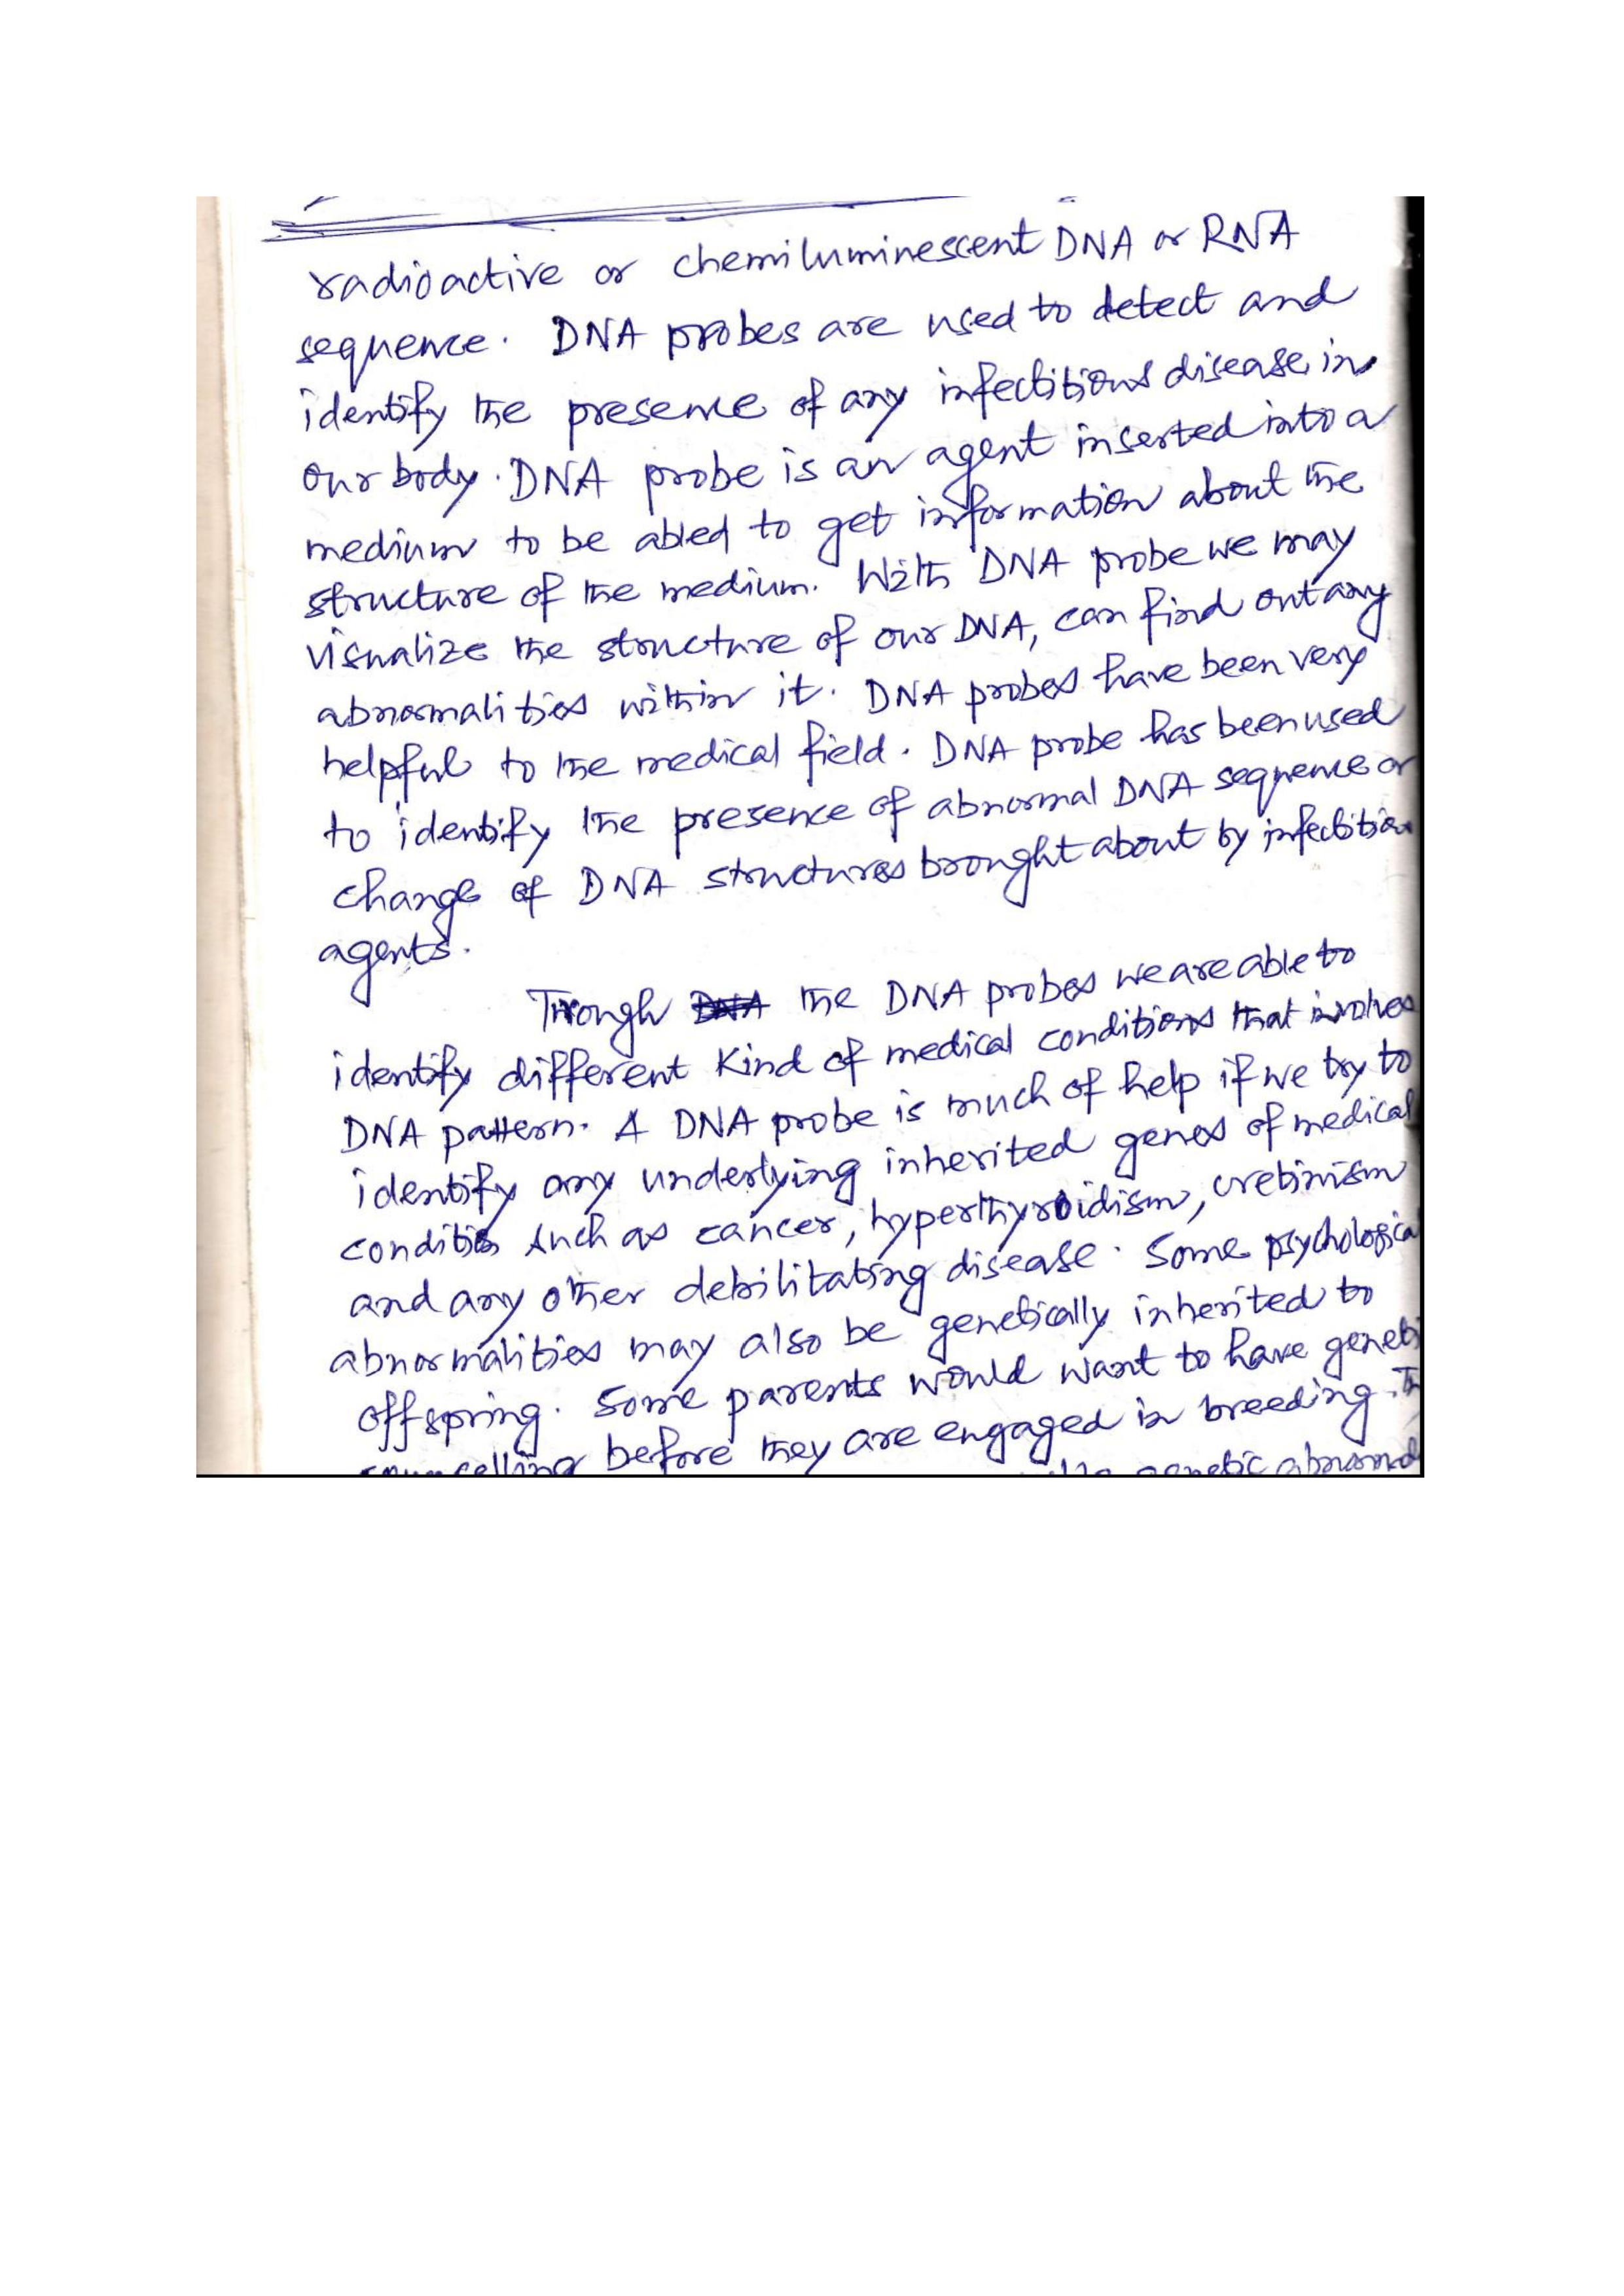 radioactive or chemiluminescent DNA or RNA
sequence. DNA probes are used to detect and
identify the presence of any infectitious disease in
our body. DNA probe is an agent inserted into a
medium to be abled to get information about the
structure of the medium. With DNA probe we may
visualize the structure of our DNA, can find out any
abnormalities within it. DNA probes have been very
helpful to the medical field. DNA probe has been used
to identify the presence of abnormal DNA sequence or
change of DNA structures brought about by
agents.
Through DNA the DNA probes we are able to
identify different kind of medical conditions that involves
DNA pattern. A DNA probe is much of help if we try to
identify any underlying inherited genes of medical
condition such as cancer, hyperthyroidism, cretinism
and any other debilitating disease. Some psychologica
abnormalities may also be genetically inherited to
offspring. Some parents would want to have geneti
counselling before they are engaged in breeding.
genetic abnormal